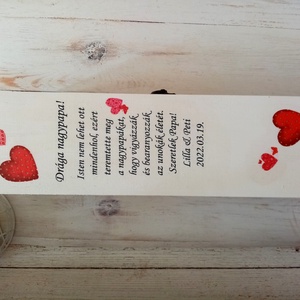 Drága nagypapa!
Isten nem lehet ott
mindenhol, ezért
teremtette meg
a nagypapákat,
hogy vigyázzák
és bearanyozzák
az unokák életét.
Szeretlek Papa!
Lilla & Peti
2022.03.19.